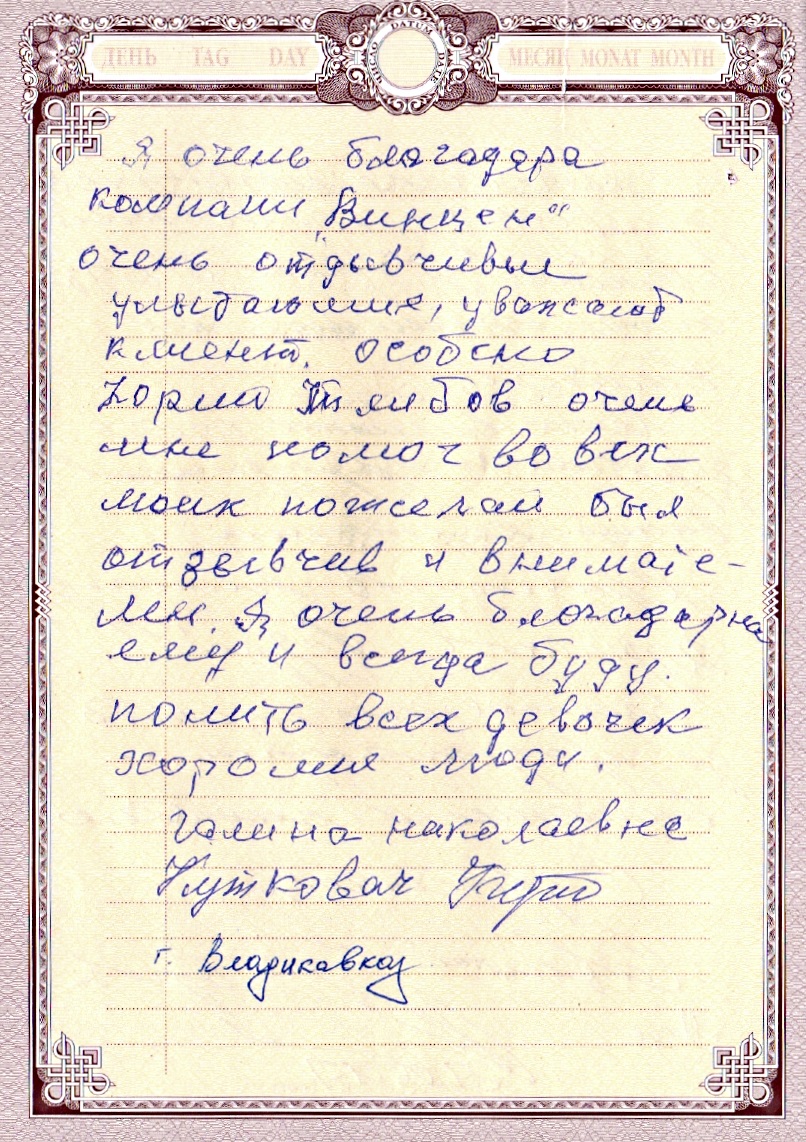 ДЕНЬ TAG DAY
DATUM
МЕСЯЦ MONAT MONTH
Я очень благодара
компании „Винцен“
очень отдывчивые
улыбающие, уважают
клиент. особено
очень
мне помоч во всх
моик пожелай был
отзывчив и внимате-
лен. Я очень благодарна
ему и всегда буду.
помить всех девочек
хорошие люди.
Галина николаевна
г. Владикавказ